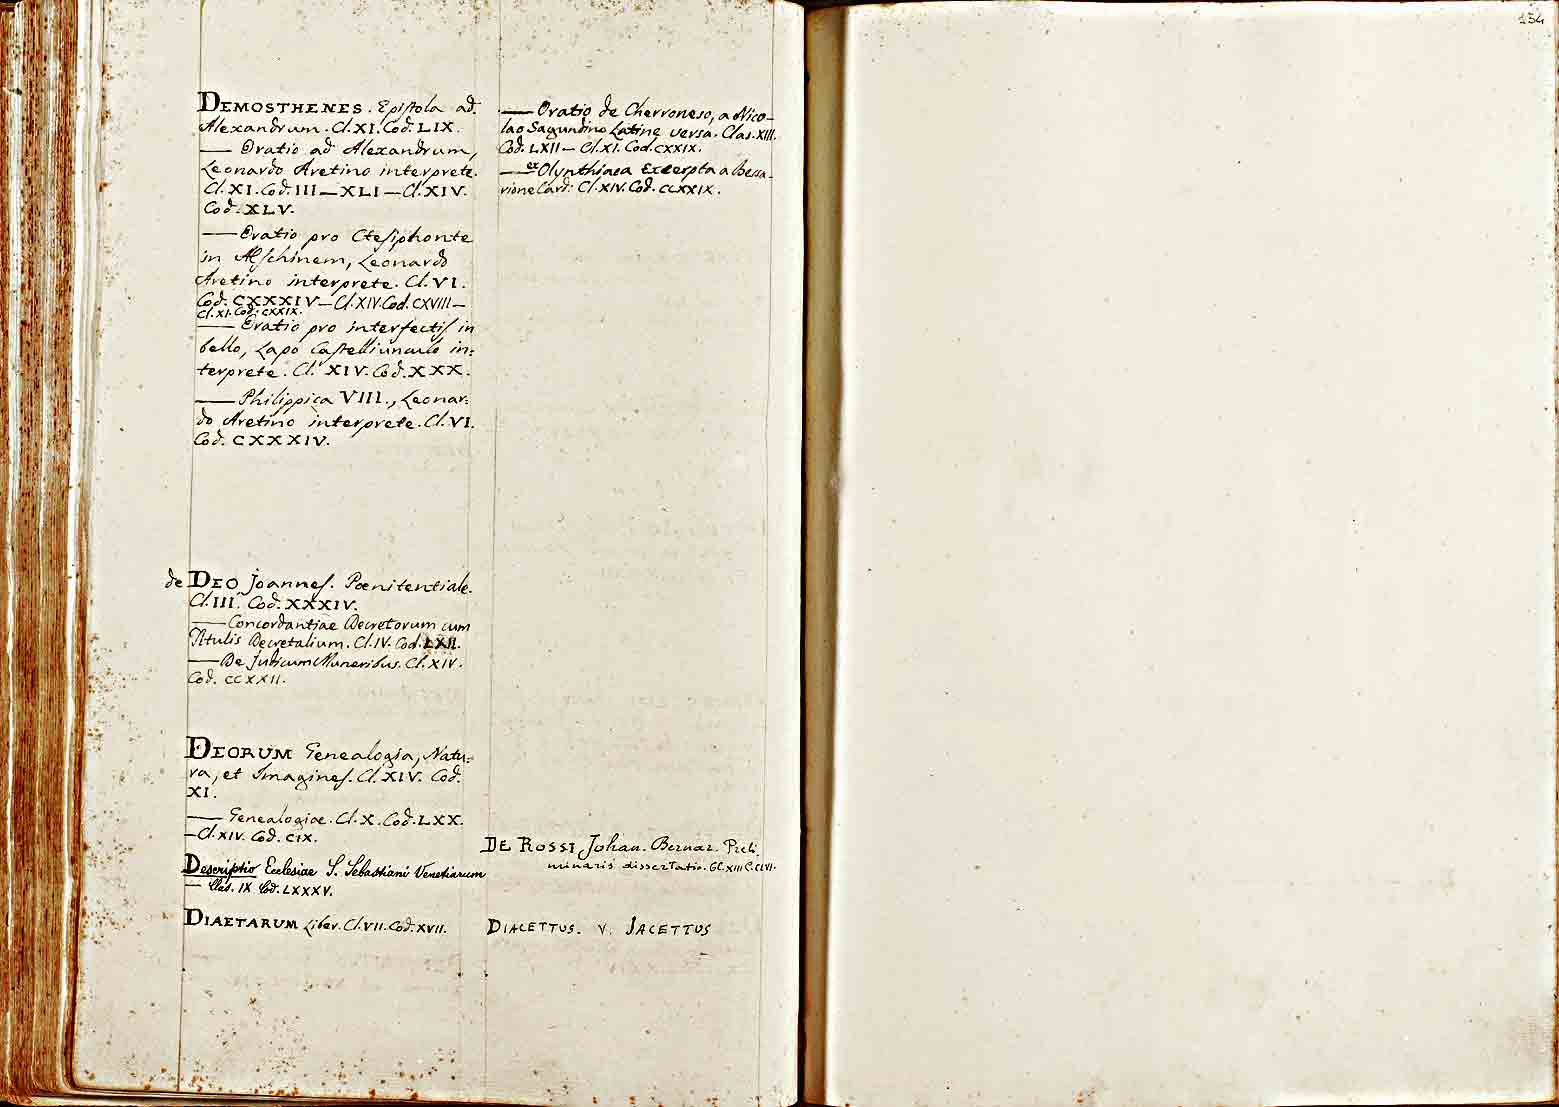 DEMOSTHENES. Epistola ad
Alexandrum. Cl. XI. Cod. LIX.
— Oratio ad Alexandrum,
Leonardo Aretino interprete.
Cl. XI. Cod. III — XLI — Cl. XIV.
Cod. XLV.
— Oratio pro Ctesiphonte
in Æschinem, Leonardo
Aretino interprete. Cl. VI.
Cod. CXXXIV — Cl. XIV. Cod. CXVIII —
Cl. XI. Cod. CXXIX.
— Oratio pro interfectis in
bello, Lapo Castelliunculo in:
terprete. Cl. XIV. Cod. XXX.
— Philippica VIII., Leonar:
do Aretino interprete. Cl. VI.
Cod. CXXXIV.
de DEO Joannes. Pœnitentiale.
Cl. III. Cod. XXXIV.
— Concordantiae Decretorum cum
Titulis Decretalium. Cl. IV. Cod. LXII.
— De Judicum Muneribus. Cl. XIV.
Cod. CCXXII.
DEORUM Genealogia, Natu:
ra, et Imagines. Cl. XIV. Cod.
XI.
— Genealogiæ. Cl. X. Cod. LXX.
— Cl. XIV. Cod. CIX.
Descriptio Ecclesiae S. Sebastiani Venetiarum
— Clas. IX Cod. LXXXV.
DIAETARUM Liber. Cl. VII. Cod. XVII.
— Oratio de Cherroneso, a Nico-
lao Sagundino Latine versa. Clas. XIII.
Cod. LXII — Cl. XI. Cod. CXXIX.
— ex Olynthiaca Excerpta a Bessa-
rione Card. Cl. XIV. Cod. CCXXIX.
DE ROSSI Johan. Bernar. Preli
minaris dissertatio. Cl. XIII C. CLVI.
DIACETTUS. V. JACETTUS
134